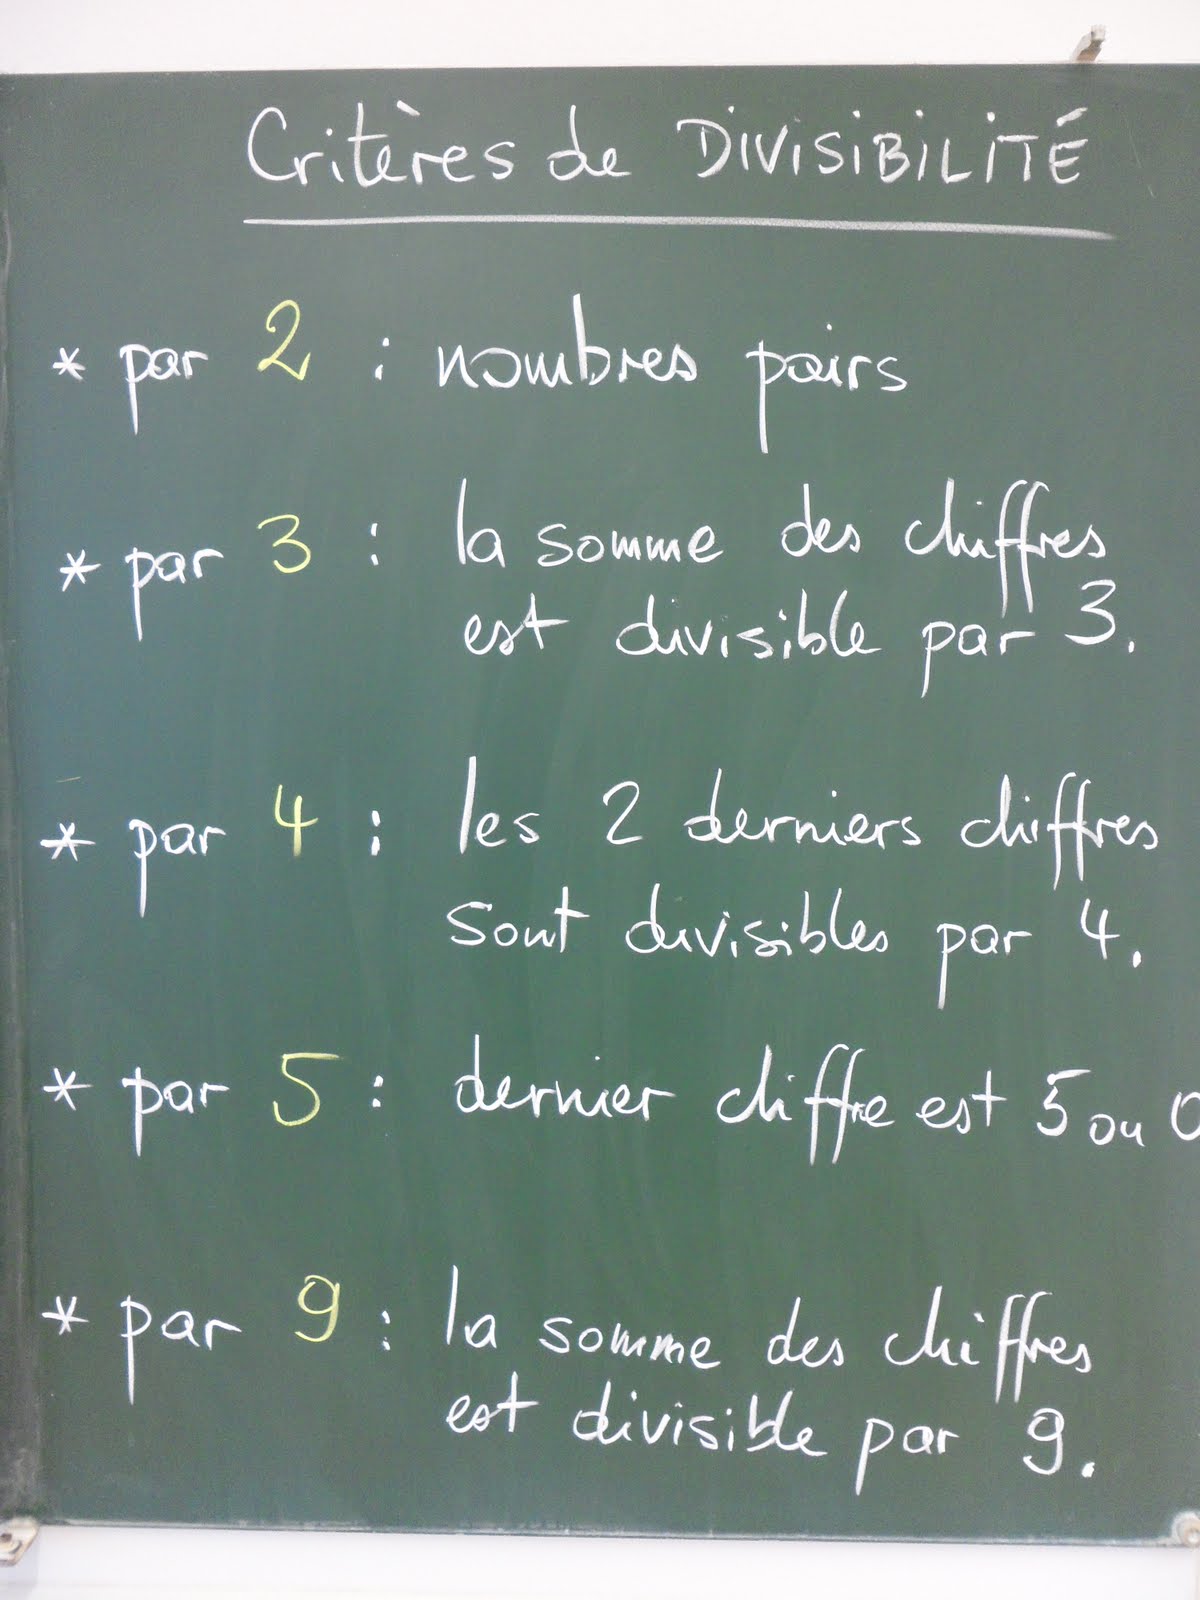 Critères de DIVISIBILITÉ
* par 2 : nombres pairs
* par 3 : la somme des chiffres
est divisible par 3.
* par 4 : les 2 derniers chiffres
sont divisibles par 4.
* par 5 : dernier chiffre est 5 ou 0
* par 9 : la somme des chiffres
est divisible par 9.